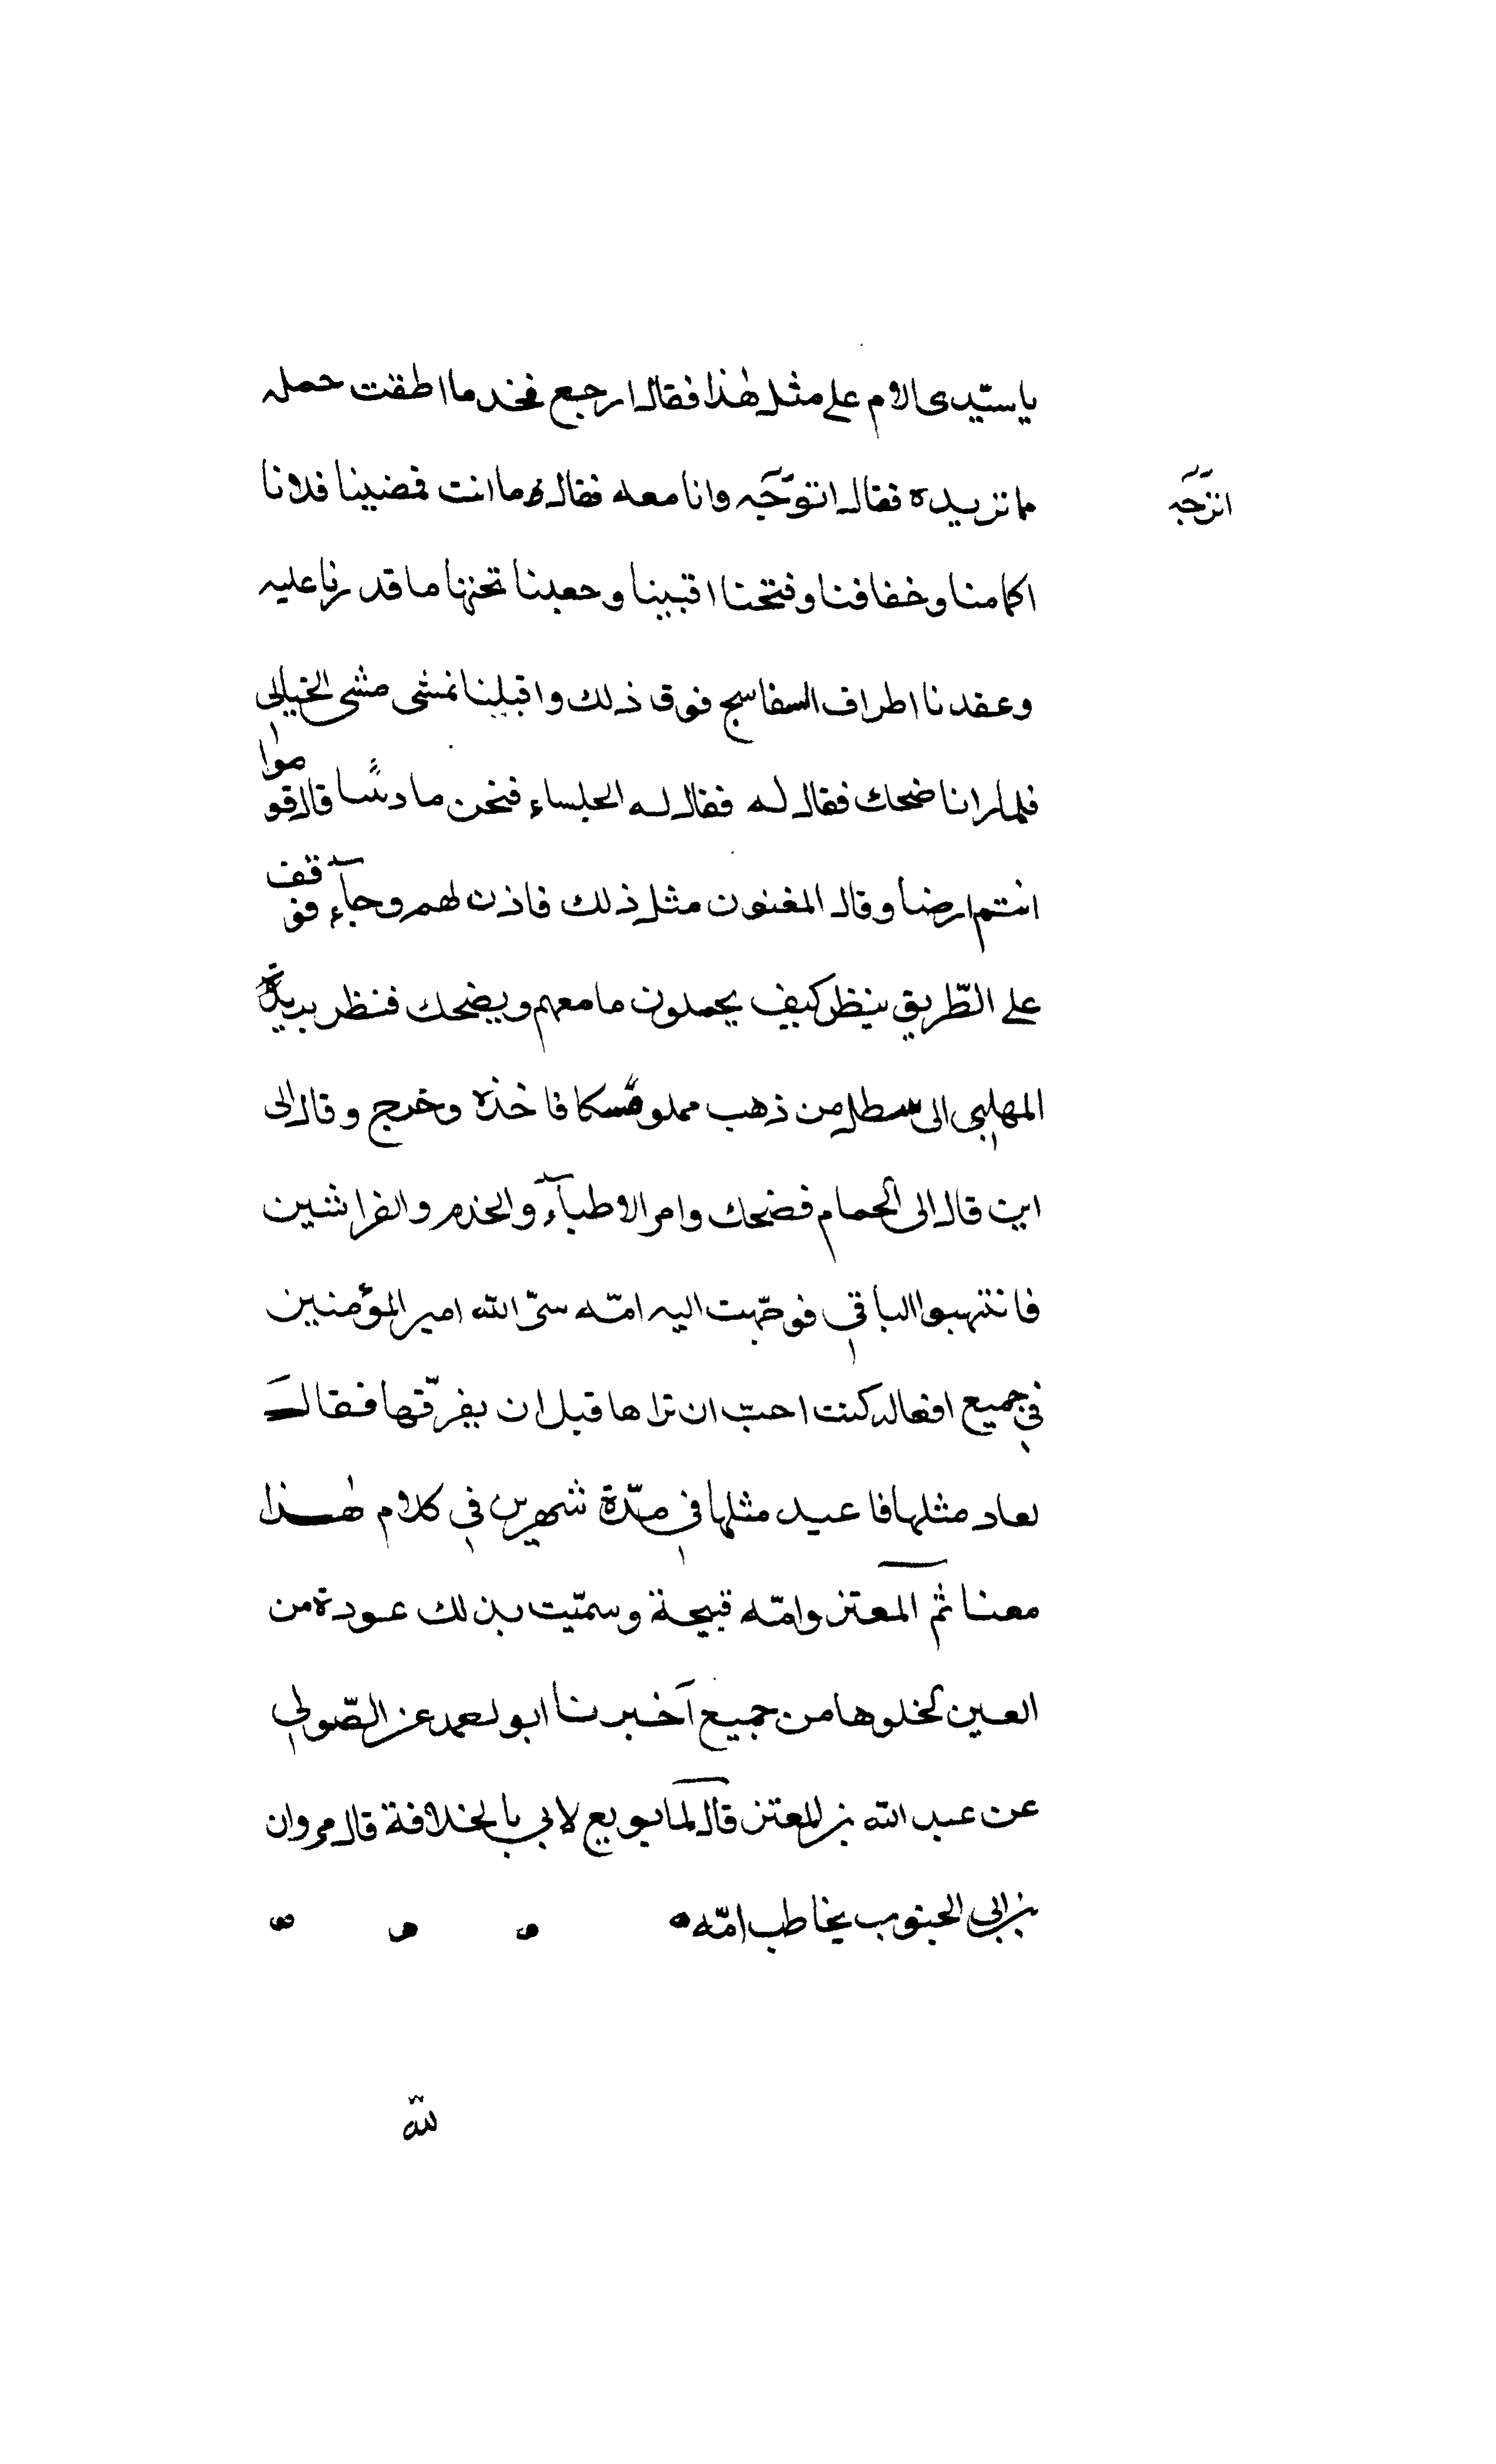 يا سيّدى الام على مثل هٰذا فقال ارجع فخذ ما اطقت حمله
مما تريده فقال اتوجّه وانا معه فقال وما انت فمضينا فلانا
اترجّه
اكمامنا وخفافنا وفتحنا اقبيتنا وجعلنا تحتها ما قدرنا عليه
وعقدنا اطراف السفاسج فوق ذلك واقبلنا نمشى مشى الخيالى
فلما رانا ضحك فقال له فقال له الجلساء فنحن ما دسا قال قوموا
انتم ارضا وقال المغنون مثل ذلك فاذن لهم وجآء فوقف
على الطّريق ينظر كيف يحملون ما معهم ويضحك فنظر يزيد
المهلبى الى سطل من ذهب مملو مسكا فاخذه وخرج وقال الى
اين قال الى الحمام فضحك وامر الاطبآء والخدم والفراشين
فانتهبوا الباقى فوجّهت اليه امّه سرّ الله امير المؤمنين
فى جميع افعاله كنت احبّ ان تراها قبل ان يفرّقها فقال
يعاد مثلها فاعيد مثلها فى مدّة شهرين فى كلام هٰذا
معنا ثم المعتز وامّه قبيحة وسمّيت بذلك عودة من
العين لخلوها من جميع آخبرنا ابو احمد عن الصّولى
عن عبد الله بن المعتز قال لما بويع لابى بالخلافة قال مروان
بن ابى الجنوب يخاطب امّه
لله